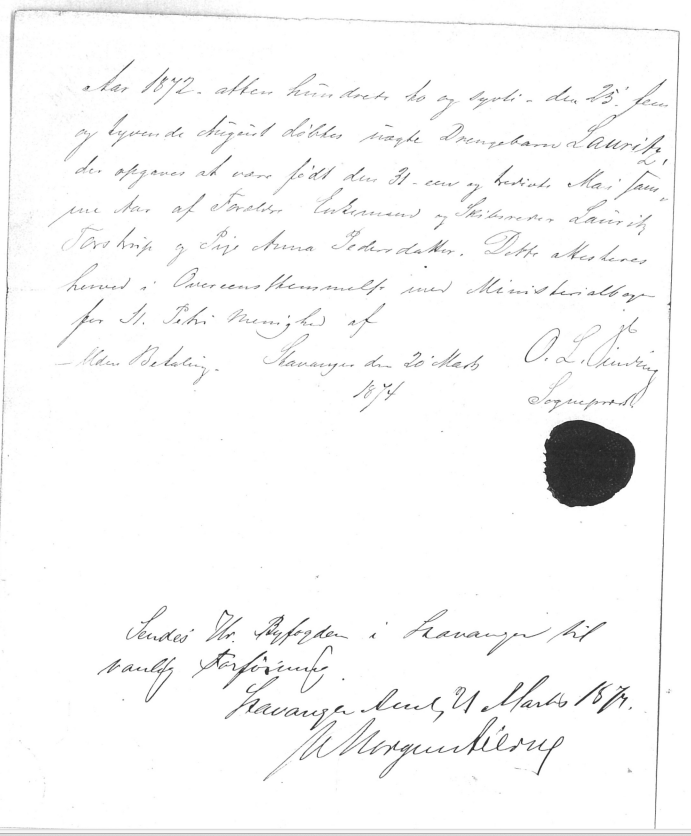 Aar 1872 - atten hundrede to og sytti - den 25. fem
og tyvende August døbtes uægte Drengebarn Lauritz,
der opgaves at være født den 31 - een og tredivte Mai sam-
me Aar af Forældre Enkemand og Skibsreder Lauritz
Torstrup og Pige Anna Pedersdatter. Dette attesteres
herved i Overeensstemmelse med Ministerialbogen
for St. Petri Menighed af
- Uden Betaling. Stavanger den 20 Marts
O. L.
1874
Sognepræst
Sendes Hr. Byfogden i Stavanger til
vanlig
Stavanger Amt, 21 Marts 1874.